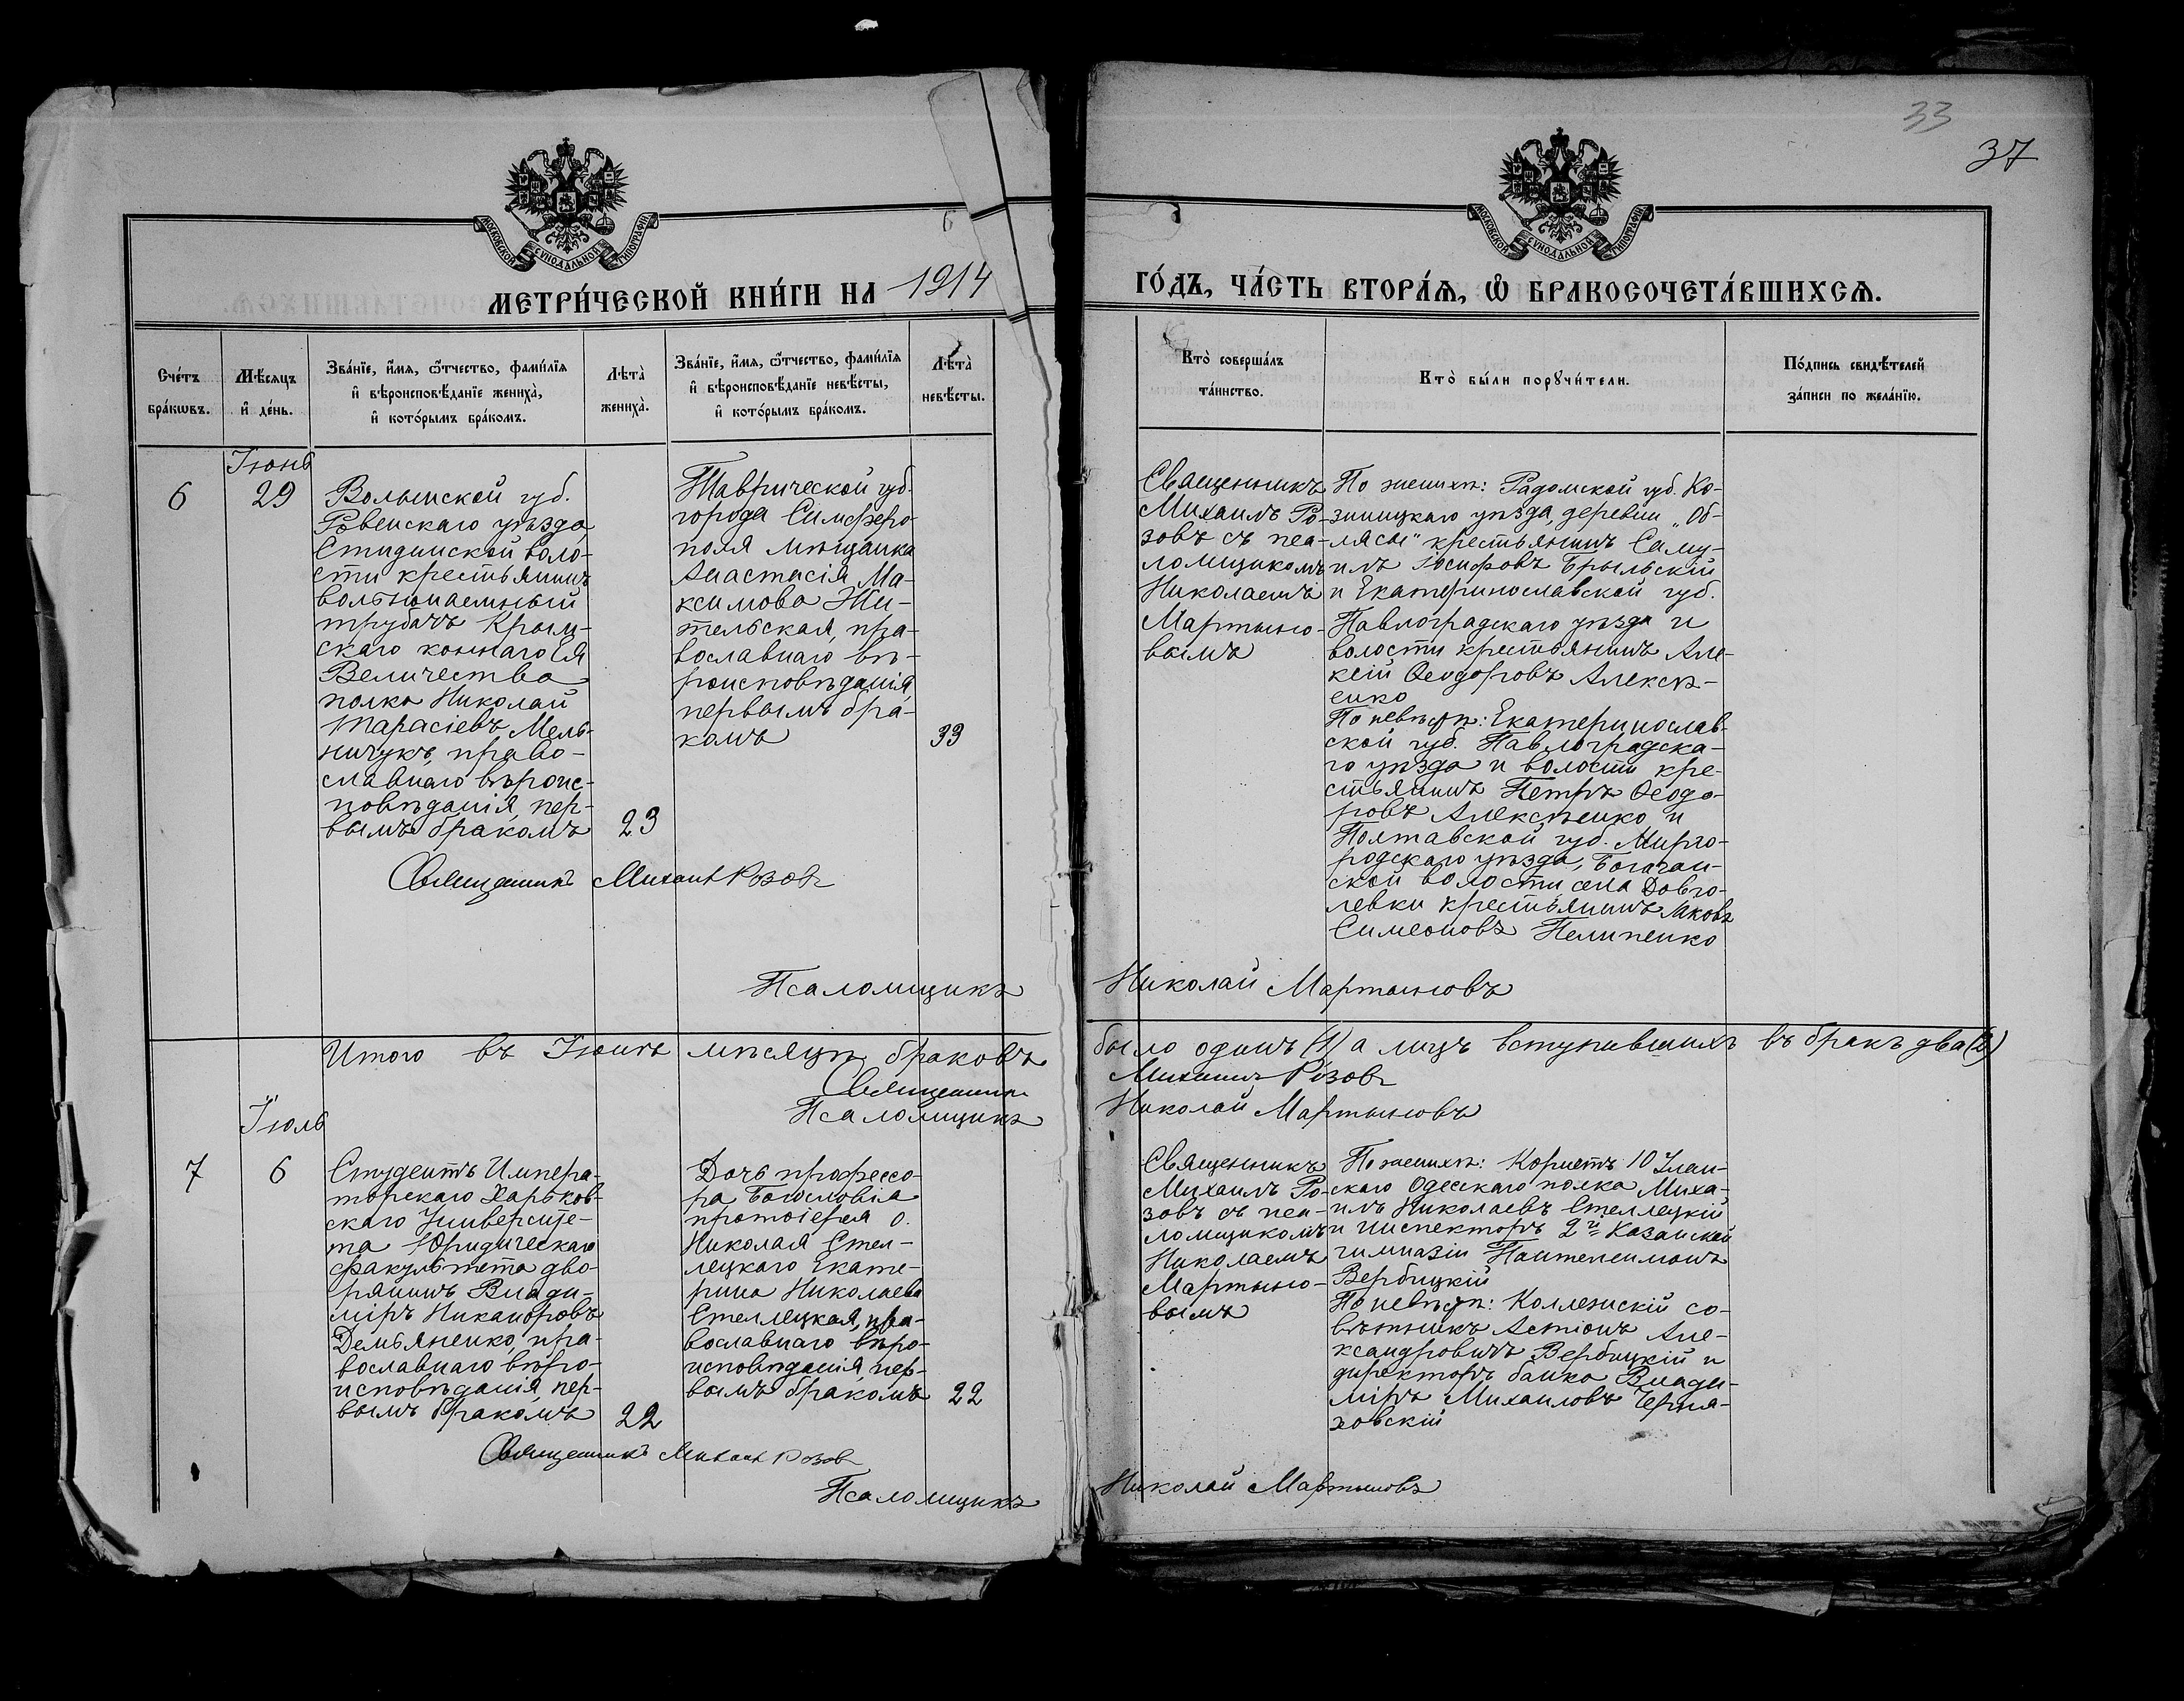 33
37
МОСКОВСКОЙ СѴНОДАЛЬНОЙ ТИПОГРАФІИ
МОСКОВСКОЙ СѴНОДАЛЬНОЙ ТИПОГРАФІИ
МЕТРИ́ЧЕСКОЙ КНИ́ГИ НА 1914
ГО́ДЪ, ЧА́СТЬ ВТОРА́Ѧ, Ѿ БРАКОСОЧЕТА́ВШИХСѦ.
Сче́тъ
бра́кѡвъ.
Мѣ́сѧцъ
и҆ де́нь.
Зва́нїе, и҆́мѧ, ѻ҆́тчество, фами́лїѧ
и҆ вѣроисповѣ́данїе жениха̀,
и҆ кото́рымъ бра́комъ.
Лѣта̀
жениха̀.
Зва́нїе, и҆́мѧ, ѻ҆́тчество, фами́лїѧ
и҆ вѣроисповѣ́данїе невѣ́сты,
и҆ кото́рымъ бра́комъ.
Лѣта̀
невѣ́сты.
Кто̀ соверша́лъ
та́инство.
Кто̀ бы́ли порꙋчи́тели.
По́дпись свидѣ́телей
за́писи по жела́нїю.
Іюнь
6
29
Волынской губ.
Ровенскаго уѣзда,
Стидинской воло-
сти крестьянинъ
вольнонаемный
трубачъ Крым-
скаго коннаго Ея
Величества
полка Николай
Тарасіевъ Мель-
ничукъ, право-
славнаго вѣроис-
повѣданія, пер-
вымъ бракомъ
23
Таврической губ.
города Симферо-
поля мѣщанка
Анастасія Ма-
ксимова Жи-
тельская, пра-
вославнаго вѣ-
роисповѣданія,
первымъ бра-
комъ
33
Священникъ
Михаилъ Ро-
зовъ съ пса-
ломщикомъ
Николаемъ
Мартыно-
вымъ
По женихѣ: Радомской губ. Ко-
зницкаго уѣзда, деревни „Об-
лясы" крестьянинъ Саму-
илъ Іосифовъ Брыльскій
и Екатеринославской губ.
Павлоградскаго уѣзда и
волости крестьянинъ Але-
ксій Ѳеодоровъ Алексѣ-
енко
По невѣстѣ: Екатеринослав-
ской губ. Павлоградска-
го уѣзда и волости кре-
стьянинъ Петръ Ѳеодо-
ровъ Алексѣенко и
Полтавской губ. Мирго-
родскаго уѣзда, Богачан-
ской волости села Довго-
левки крестьянинъ Іаковъ
Симеоновъ Пелипенко
Священникъ Михаилъ Розовъ
Псаломщикъ Николай Мартыновъ
Итого въ Іюнѣ мѣсяцѣ браковъ было одинъ (1) а лицъ вступившихъ въ бракъ два (2)
Священникъ Михаилъ Розовъ
Псаломщикъ Николай Мартыновъ
Іюль
7
6
Студентъ Импера-
торскаго Харьков-
скаго Университе-
та Юридическаго
факультета дво-
рянинъ Влади-
міръ Никаноровъ
Демьяненко, пра-
вославнаго вѣро-
исповѣданія, пер-
вымъ бракомъ
22
Дочь профессо-
ра Богословія
протоіерея о.
Николая Стел-
лецкаго Екате-
рина Николаева
Стеллецкая, пра-
вославнаго вѣро-
исповѣданія, пер-
вымъ бракомъ
22
Священникъ
Михаилъ Ро-
зовъ съ пса-
ломщикомъ
Николаемъ
Мартыно-
вымъ
По женихѣ: Корнетъ 10 Улан-
скаго Одесскаго полка Миха-
илъ Николаевъ Стеллецкій
и инспекторъ 2й Казанской
гимназіи Пантелеимонъ
Вербицкій
По невѣстѣ: Коллежскій со-
вѣтникъ Астіонъ Але-
ксандровичъ Вербицкій и
директоръ банка Влади-
міръ Михаиловъ Черня-
ховскій
Священникъ Михаилъ Розовъ
Псаломщикъ Николай Мартыновъ